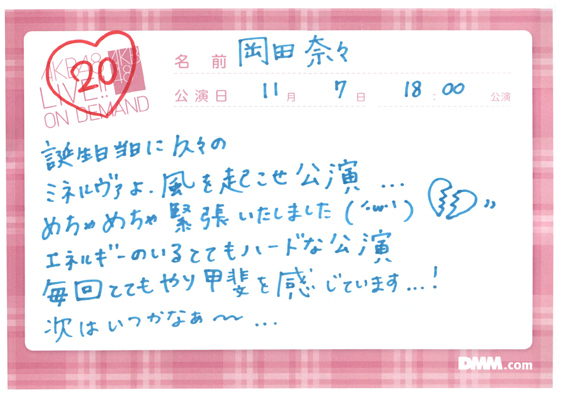 20
AKB48
LIVE!!
ON DEMAND
名前 岡田奈々
公演日 11月 7日 18:00 公演
誕生日当日に久々の
ミネルヴァよ、風を起こせ公演...
めちゃめちゃ緊張いたしました(´・ω・`)
エネルギーのいるとてもハードな公演
毎回とてもやり甲斐を感じています...!
次はいつかなぁ〜...
DMM.com